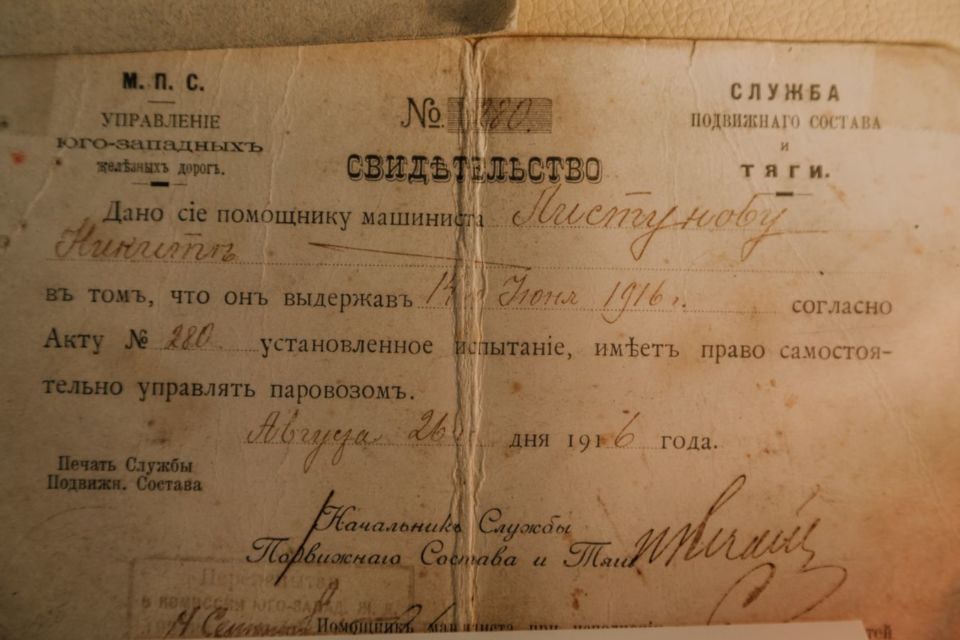 М. П. С.
УПРАВЛЕНІЕ
ЮГО-ЗАПАДНЫХЪ
желѣзныхъ дорогъ.
№ 280.
СВИДѢТЕЛЬСТВО
СЛУЖБА
ПОДВИЖНАГО СОСТАВА
И
ТЯГИ.
Дано сіе помощнику машиниста Листунову
Никитѣ
въ томъ, что онъ выдержав 14го Іюня 1916 г. согласно
Акту № 280 установленное испытаніе, имѣетъ право самостоя-
тельно управлять паровозомъ.
Августа 26 дня 1916 года.
Печать Службы
Подвижн. Состава
Начальникъ Службы
Подвижнаго Состава и Тяги
в комиссии ЮГО-ЗАПАД. Ж. д.
Помощникъ машиниста при